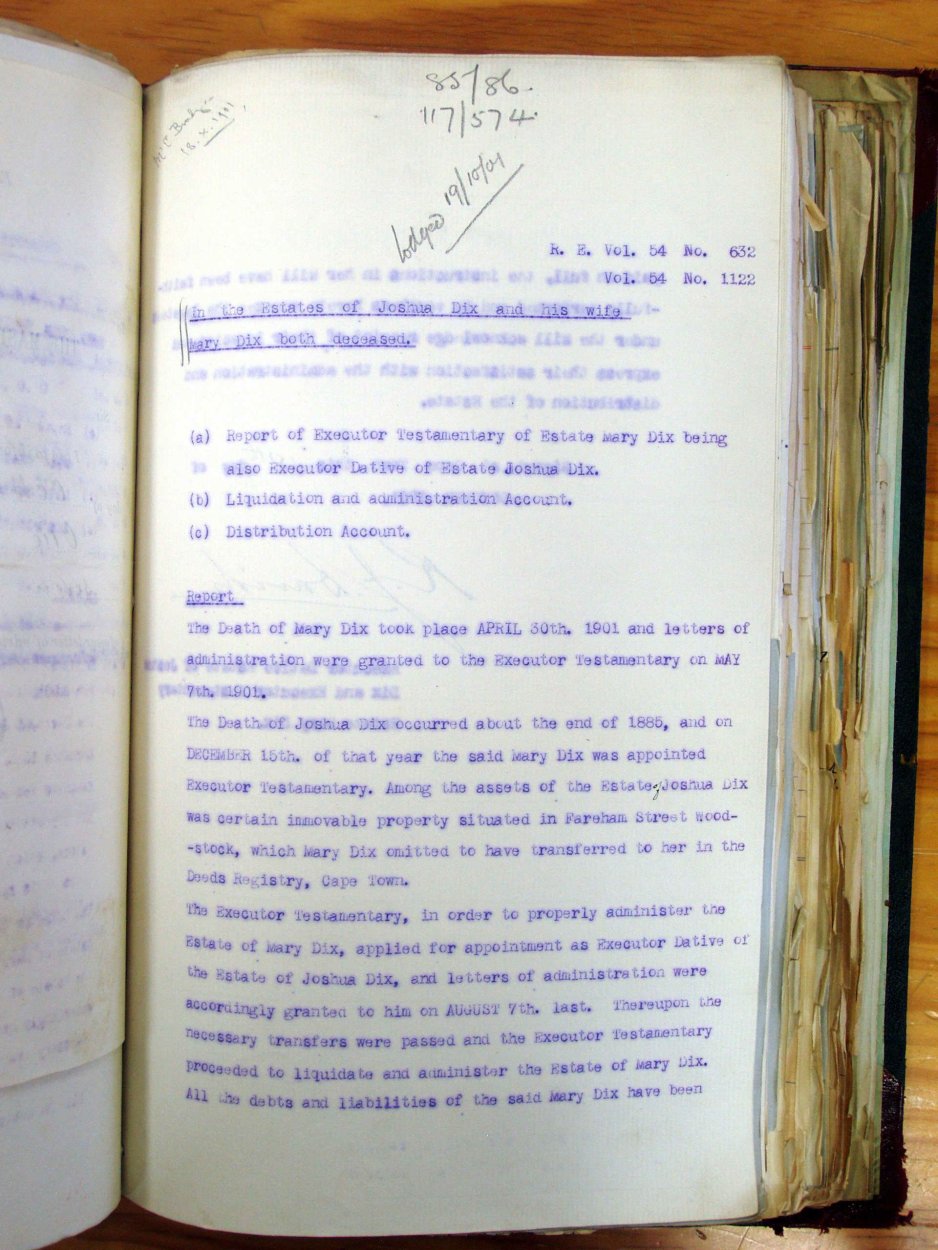 85/86.
117/574.
18.X.1901
Lodged 19/10/01
R. E. Vol. 54 No. 632
Vol. 54 No. 1122
In the Estates of Joshua Dix and his wife
Mary Dix both deceased.
(a) Report of Executor Testamentary of Estate Mary Dix being
also Executor Dative of Estate Joshua Dix.
(b) Liquidation and administration Account.
(c) Distribution Account.
Report
The Death of Mary Dix took place APRIL 30th. 1901 and letters of
administration were granted to the Executor Testamentary on MAY
7th. 1901.
The Death of Joshua Dix occurred about the end of 1885, and on
DECEMBER 15th. of that year the said Mary Dix was appointed
Executor Testamentary. Among the assets of the Estate Joshua Dix
was certain immovable property situated in Fareham Street Wood-
-stock, which Mary Dix omitted to have transferred to her in the
Deeds Registry, Cape Town.
The Executor Testamentary, in order to properly administer the
Estate of Mary Dix, applied for appointment as Executor Dative of
the Estate of Joshua Dix, and letters of administration were
accordingly granted to him on AUGUST 7th. last. Thereupon the
necessary transfers were passed and the Executor Testamentary
proceeded to liquidate and administer the Estate of Mary Dix.
All the debts and liabilities of the said Mary Dix have been